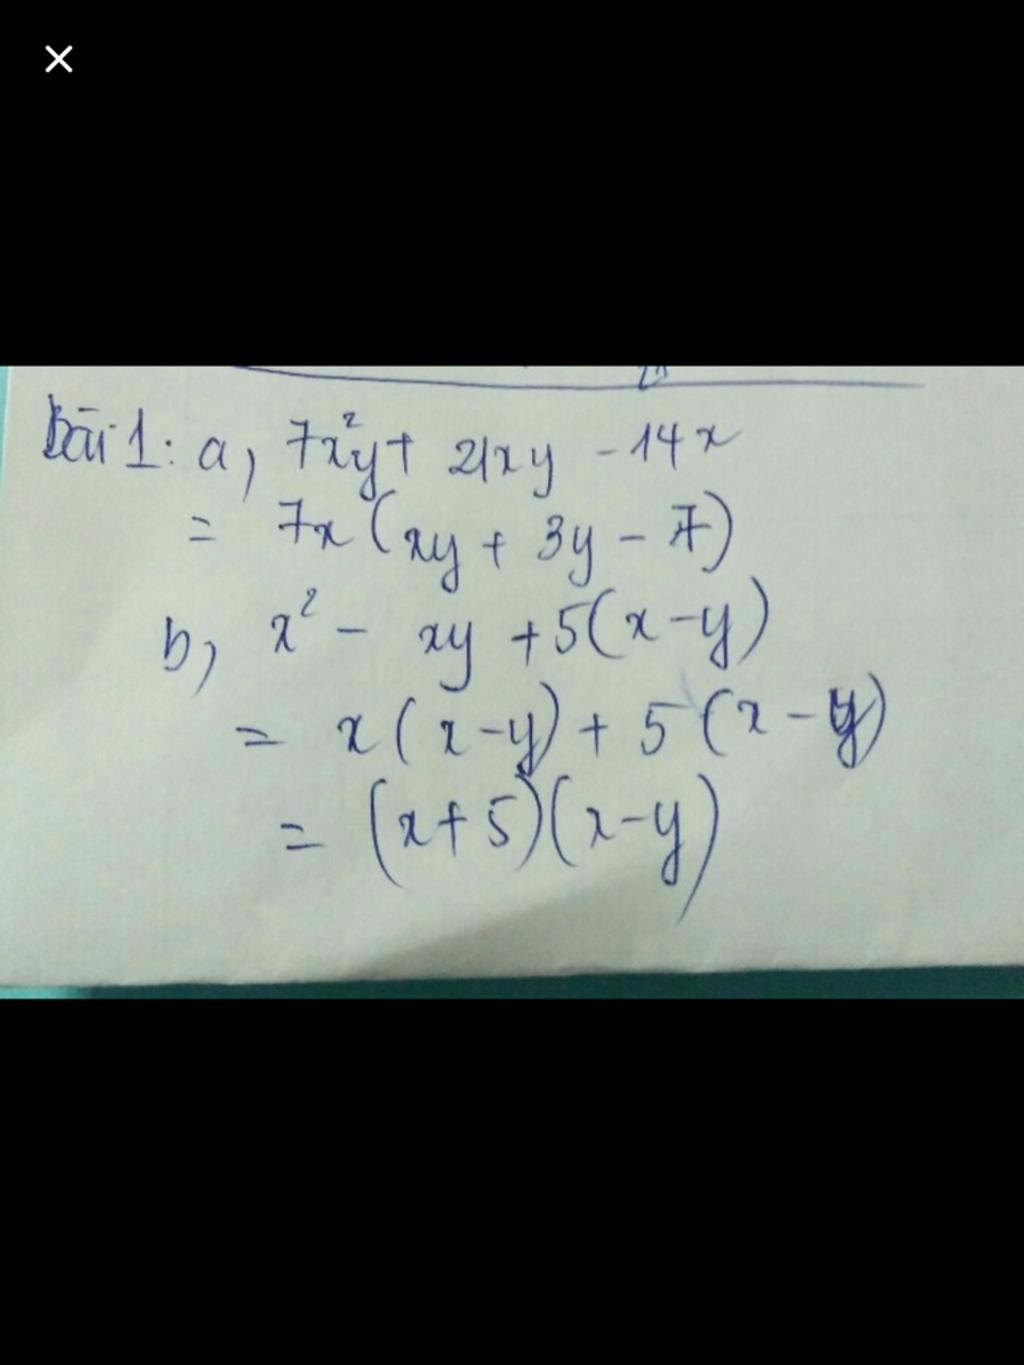 Bài 1: a, 7x²y + 21xy - 14x
= 7x (xy + 3y - 7)
b, x² - xy + 5(x-y)
= x (x-y) + 5 (x - y)
= (x+5)(x-y)